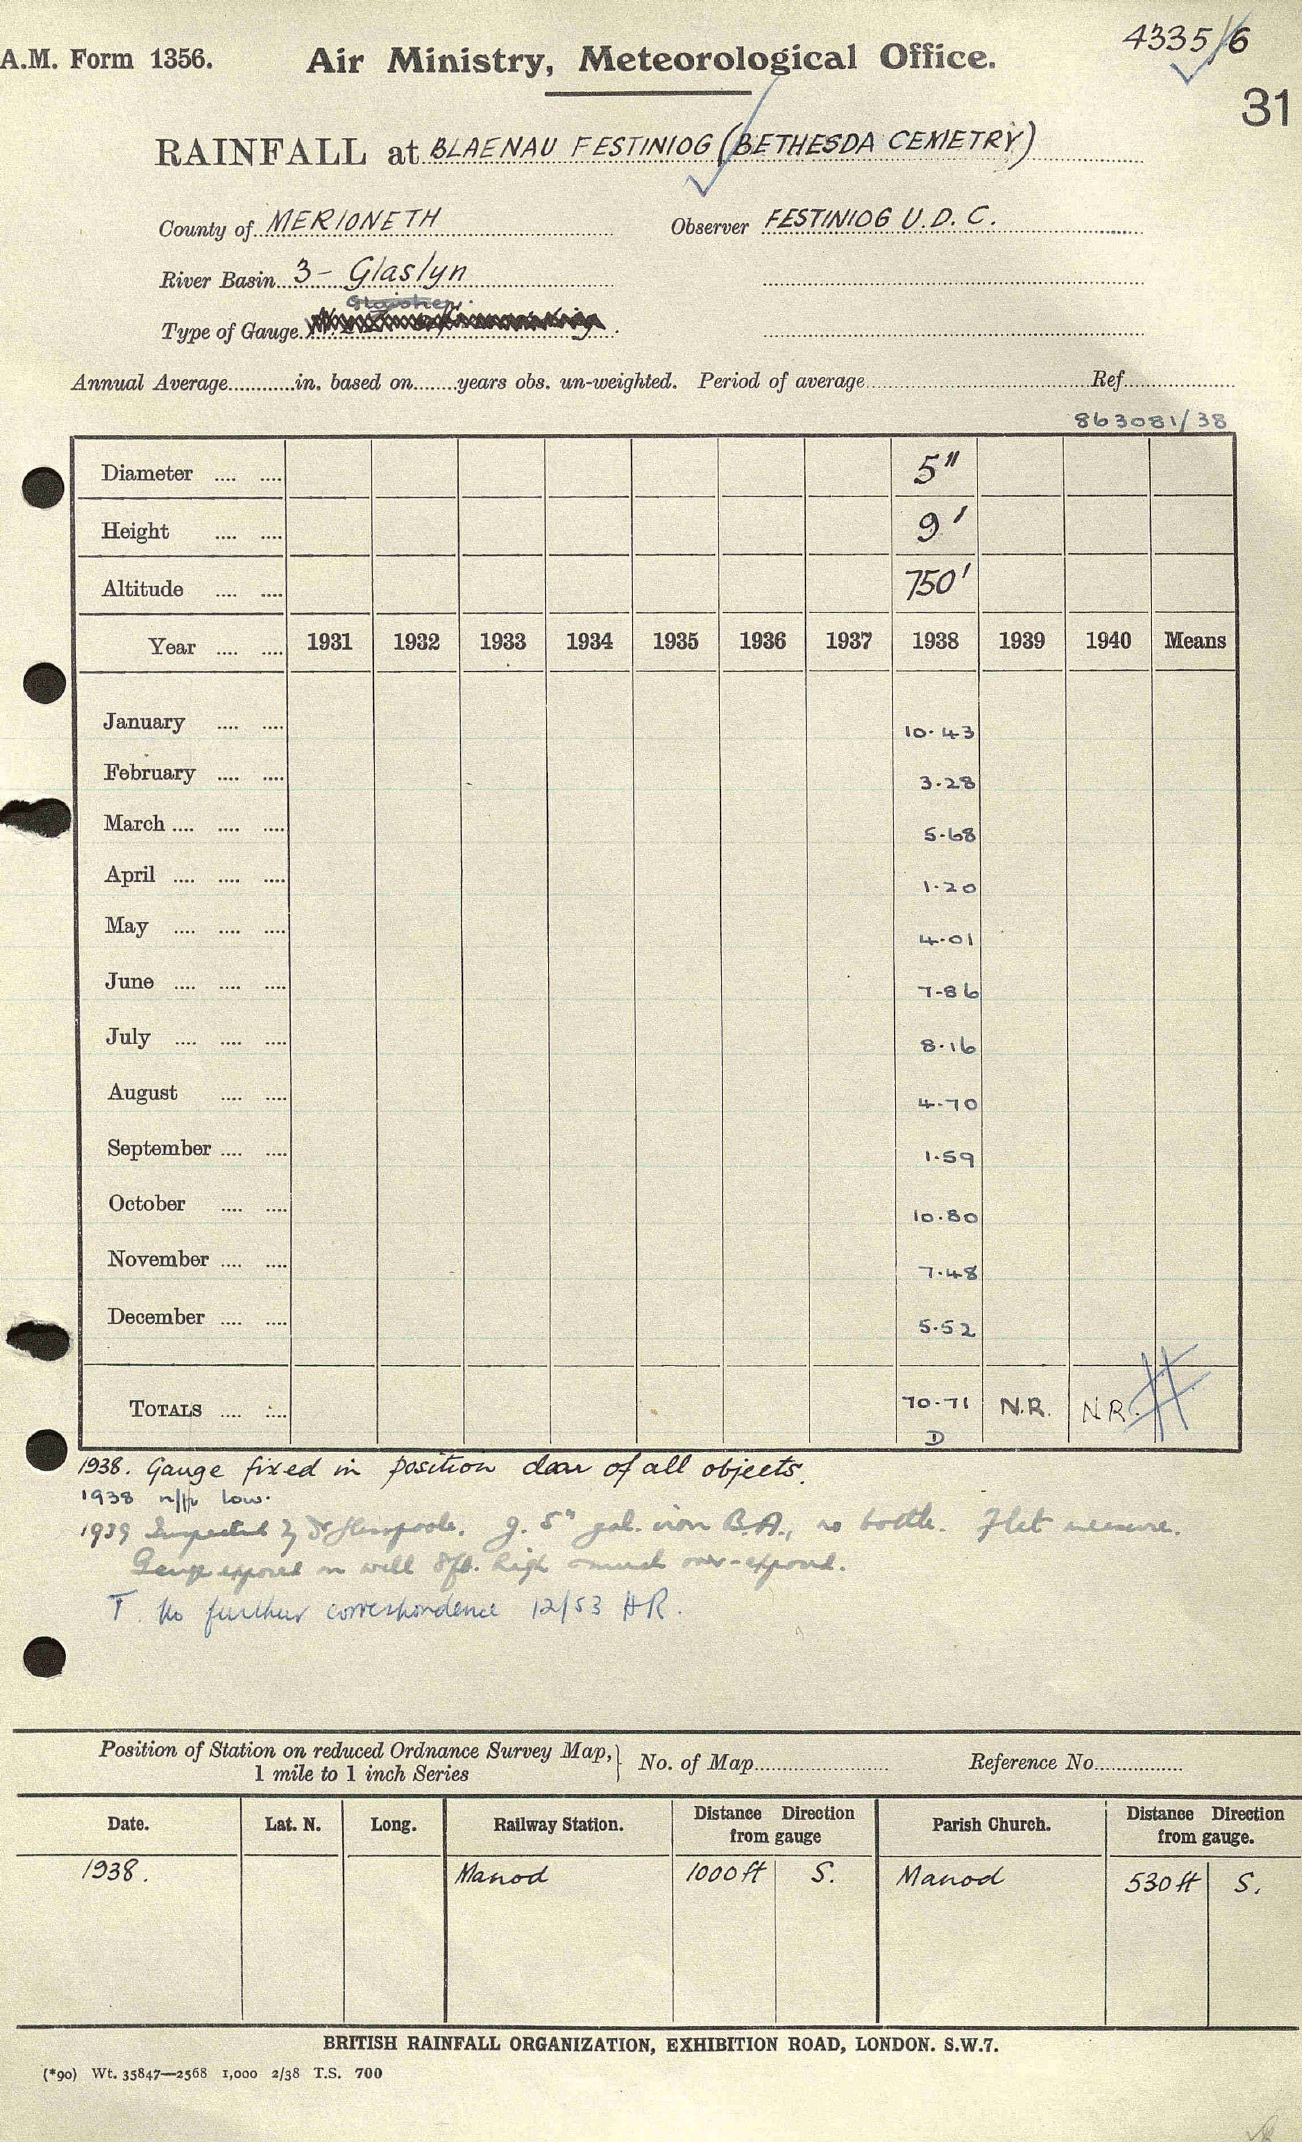 4335/6
A.M. Form 1356. Air Ministry, Meteorological Office.
31
RAINFALL at BLAENAU FESTINIOG (BETHESDA CEMETRY)
County of MERIONETH Observer FESTINIOG U.D.C.
River Basin 3 - Glaslyn
Glaisher
Type of Gauge
Annual Average............in. based on........years obs. un-weighted. Period of average........................................Ref...................
863081/38
Diameter .... .... 5"
Height .... .... 9'
Altitude .... .... 750'
Year .... .... 1931 1932 1933 1934 1935 1936 1937 1938 1939 1940 Means
January .... .... 10.43
February .... .... 3.28
March .... .... .... 5.68
April .... .... .... 1.20
May .... .... .... 4.01
June .... .... .... 7.86
July .... .... .... 8.16
August .... .... 4.70
September .... .... 1.59
October .... .... 10.80
November .... .... 7.48
December .... .... 5.52
TOTALS .... .... 70.71 N.R. N.R.
D
1938. Gauge fixed in position clear of all objects.
1938 low.
1939 Inspected by Dr Glasspoole. g. 5" gal. iron B.A., no bottle. Flat measure.
Gauge exposed on wall 8ft. high - much over-exposed.
T. No further correspondence 12/53 HR.
Position of Station on reduced Ordnance Survey Map, 1 mile to 1 inch Series } No. of Map........................ Reference No................
Date. Lat. N. Long. Railway Station. Distance Direction from gauge Parish Church. Distance Direction from gauge.
1938. Manod 1000 ft S. Manod 530 ft S.
BRITISH RAINFALL ORGANIZATION, EXHIBITION ROAD, LONDON. S.W.7.
(*90) Wt. 35847—2568 1,000 2/38 T.S. 700